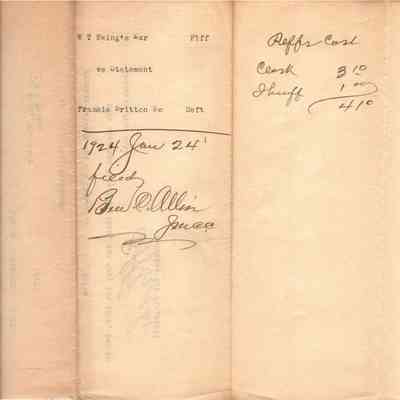 W T Ewing's Exr Plff
vs Statement
Francis Britton &c Deft
1924 Jan 24
filed
Ben D. Allin
Jmcc
Plffs Cost
Clerk 3 10
Sheriff 1 00
4 10